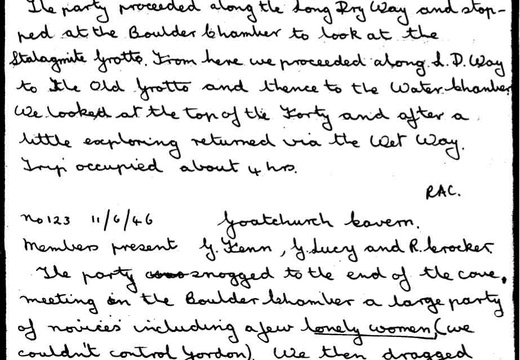 The party proceeded along the Long Dry Way and stop-
ped at the Boulder Chamber to look at the
Stalagmite Grotto. From here we proceeded along L.D. Way
to the Old Grotto and thence to the Water Chamber
We looked at the top of the Forty and after a
little exploring returned via the Wet Way.
Trip occupied about 4 hrs.
RAC.
No 123 11/6/46 Goatchurch Cavern.
Members present G. Fenn, G. Lucy and R. Crocker
The party snogged to the end of the cave,
meeting in the Boulder Chamber a large party
of novices including a few lonely women (we
couldn't control Gordon). We then dragged